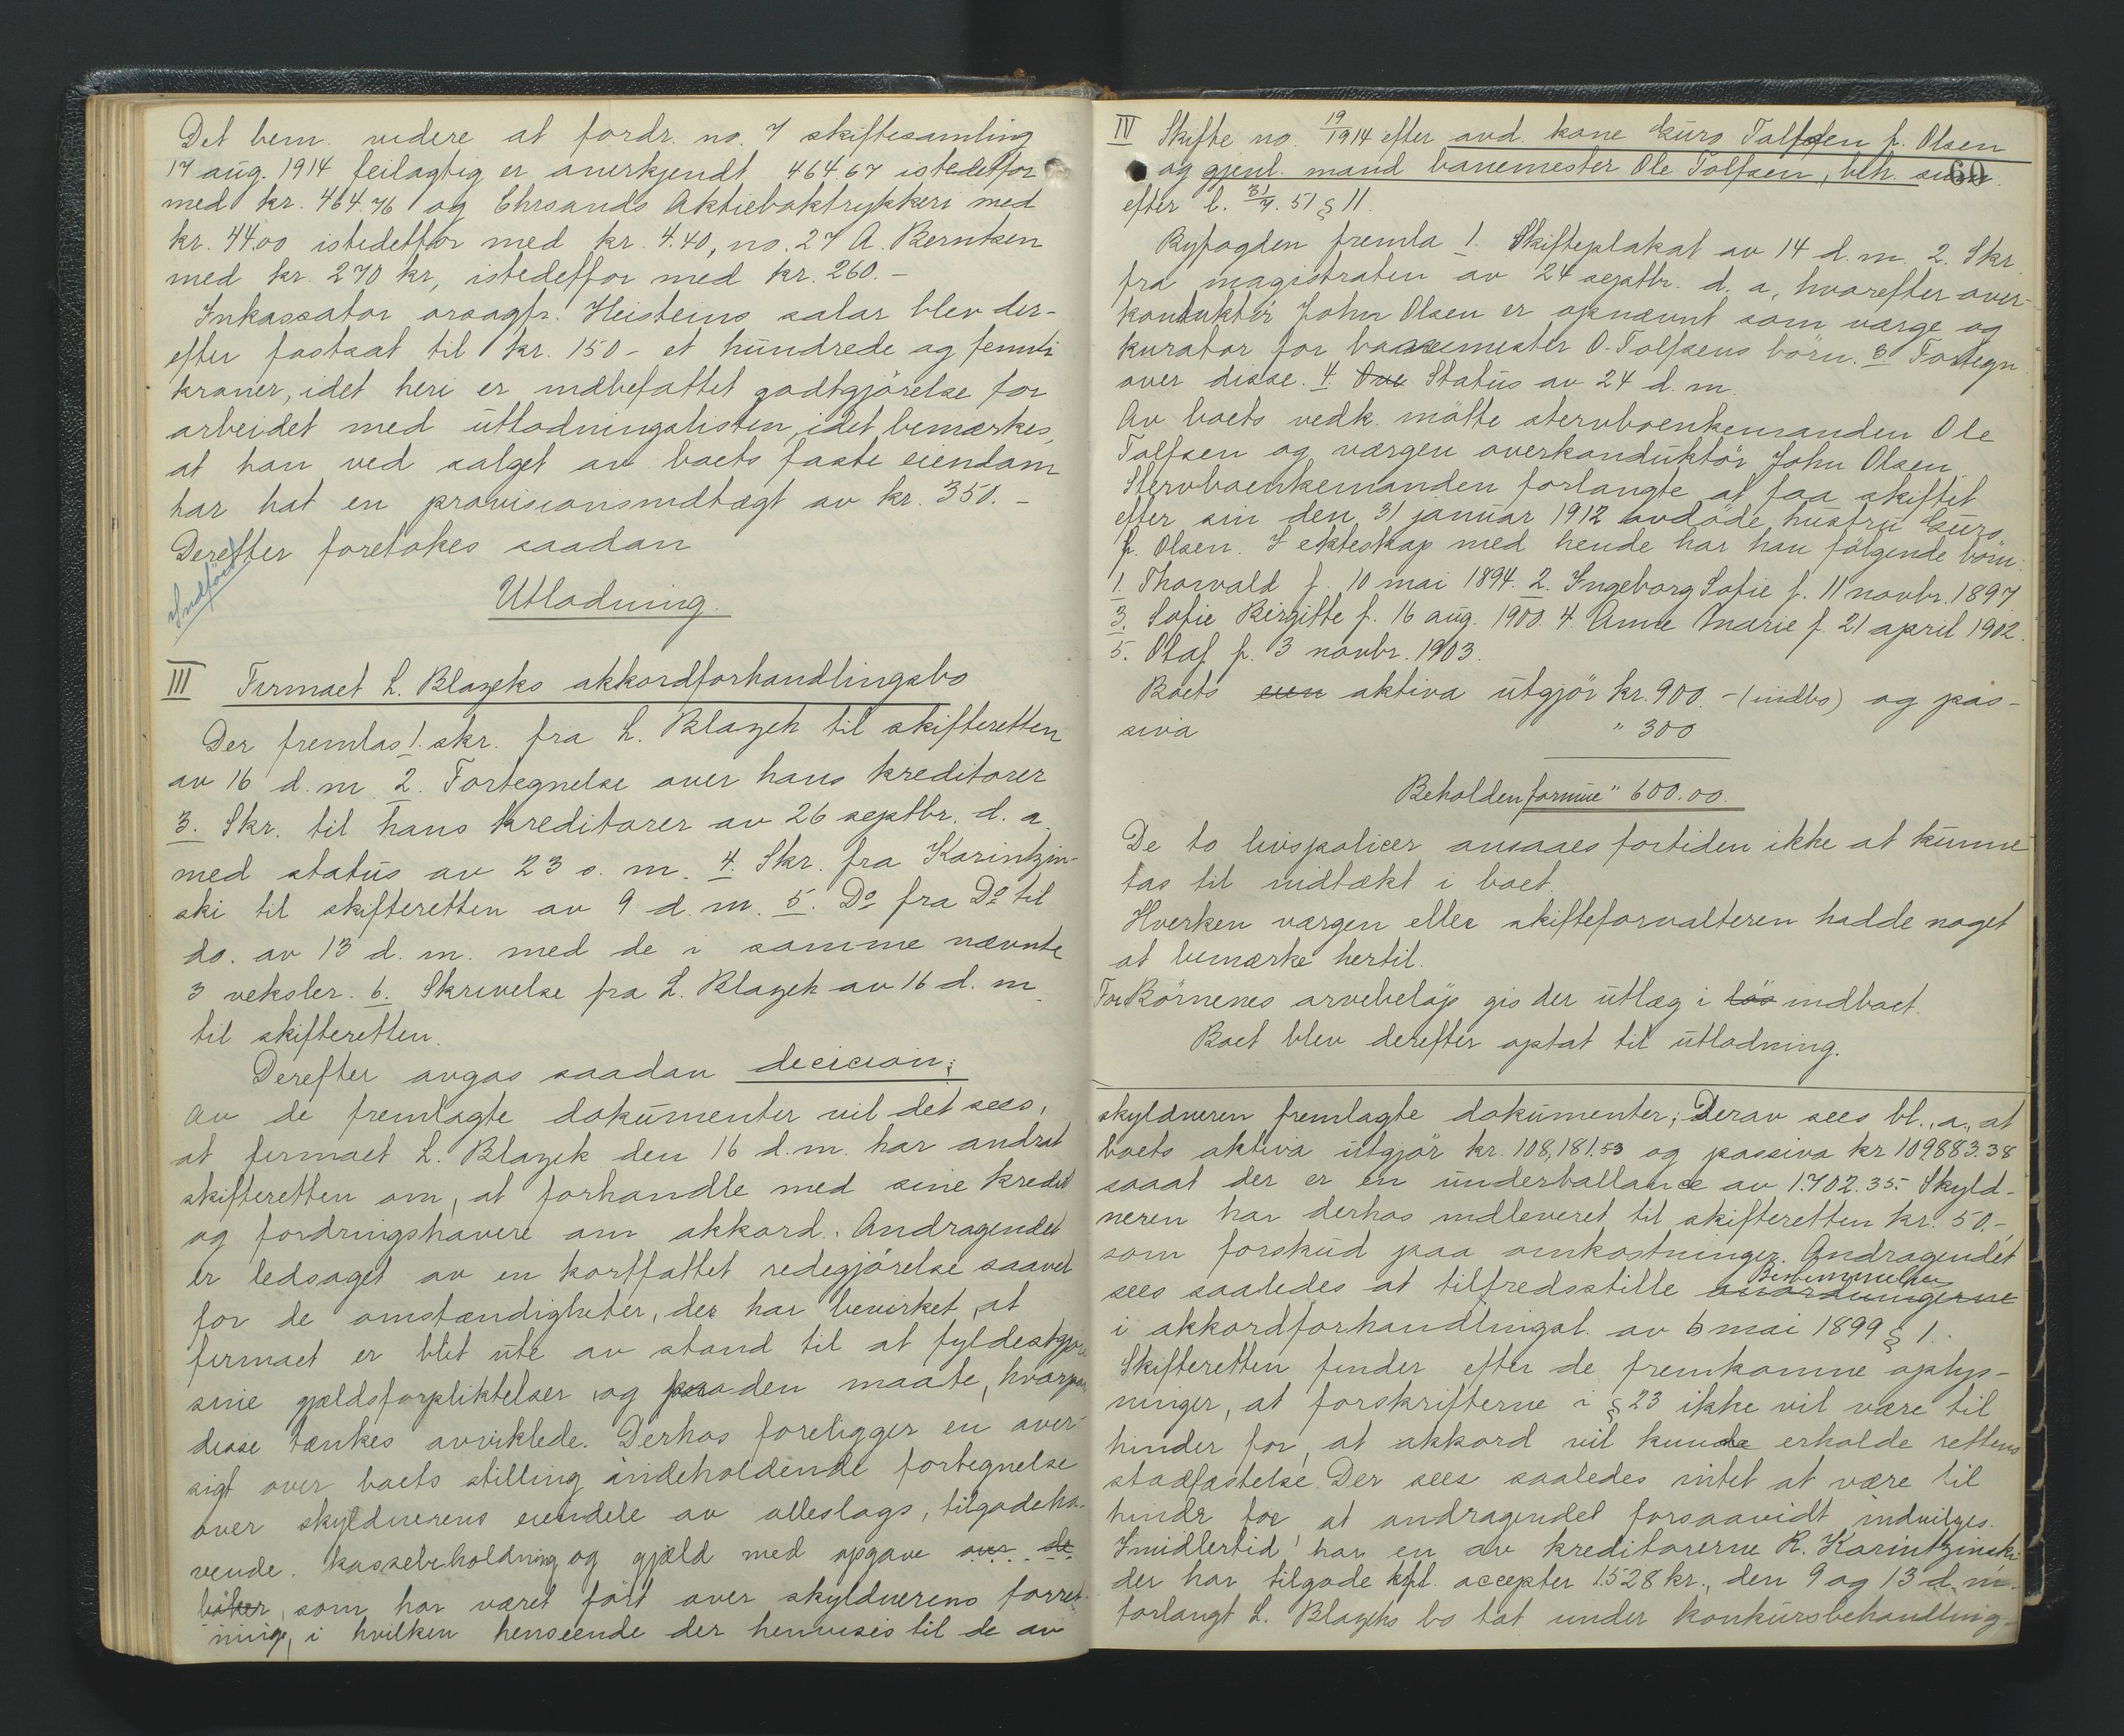 Det bem. videre at fordr. no. 7 skiftesamling
17 aug. 1914 feilagtig er anerkjendt 464.67 istedetfor
med kr. 464.76 og Chrsands Aktieboktrykkeri med
kr. 44.00 istedetfor med kr. 4.40, no. 27 A. Berntsen
med kr. 270 kr, istedetfor med kr. 260.-
Inkassator orsagfr. Heisteins salar blev der-
efter fastsat til kr. 150- et hundrede og femti
kroner, idet heri er indbefattet godtgjörelse for
arbeidet med utlodningslisten, idet bemærkes,
at han ved salget av boets faste eiendom
har hat en provisionsindtægt av kr. 350.-
Derefter foretokes saadan
Indført
Utlodning.
III Firmaet L. Blazeks akkordforhandlingsbo
Der fremlas 1. skr. fra L. Blazek til skifteretten
av 16 d. m. 2. Fortegnelse over hans kreditorer
3. Skr. til hans kreditorer av 26 septbr. d. a.
med status av 23 s. m. 4. Skr. fra Karintzin-
ski til skifteretten av 9 d. m. 5. Do fra Do til
do. av 13 d. m. med de i samme nævnte
3 veksler. 6. Skrivelse fra L. Blazek av 16 d. m.
til skifteretten.
Derefter avgas saadan decicion:
Av de fremlagte dokumenter vil det sees,
at firmaet L. Blazek den 16 d. m. har andrat
skifteretten om, at forhandle med sine kredit
og fordringshavere om akkord. Andragendet
er ledsaget av en kortfattet redegjörelse saavel
for de omstændigheter, der har bevirket, at
firmaet er blit ute av stand til at fyldestgjöre
sine gjældsforpliktelser og paa den maate, hvorpaa
disse tænkes avviklede. Derhos foreligger en over-
sigt over boets stilling indeholdende fortegnelse
over skyldnerens eiendele av alleslags, tilgodeha-
vende, kassebeholdning og gjæld med opgave over de
böker, som har været fört over skyldnerens forret-
ninge, i hvilken henseende der henvises til de av
IV Skifte no. 19/1914 efter avd. kone Guro Tolfsen f. Olsen
69
og gjenl. mand banemester Ole Tolfsen, beh.
efter l. 31/7. 51 § 11.
Byfogden fremla 1. Skifteplakat av 14 d. m. 2. Skr.
fra magistraten av 24 septbr. d. a, hvorefter over-
konduktör John Olsen er opnævnt som værge og
kurator for banemester O. Tolfsens börn. 3. Fortegn
over disse. 4. Ove Status av 24 d. m.
Av boets vedk. mötte stervboenkemanden Ole
Tolfsen og værgen overkonduktör John Olsen.
Stervboenkemanden forlangte at faa skiftet
efter sin den 31 januar 1912 avdöde hustru Guro
f. Olsen. I ekteskap med hende har han fölgende börn:
1. Thorvald f. 10 mai 1894. 2. Ingeborg Sofie f. 11 novbr. 1897
3. Sofie Birgitte f. 16 aug. 1900. 4. Anne Marie f. 21 april 1902.
5. Olaf f. 3 novbr. 1903.
Boets eien aktiva utgjör kr. 900.- (indbo) og pas-
siva " 300
Beholden formue " 600.00.
De to livspolicer ansaaes fortiden ikke at kunne
tas til indtækt i boet.
Hverken værgen eller skifteforvalteren hadde noget
at bemærke hertil.
For Börnenes arvebelöp gis der utlæg i lös indboet.
Boet blev derefter optat til utlodning.
skyldneren fremlagte dokumenter; Derav sees bl. a., at
boets aktiva utgjör kr. 108,181.53 og passiva kr 109883.38
saaat der er en underballance av 1.702.35. Skyld-
neren har derhos indleveret til skifteretten kr. 50.-,
som forskud paa omkostninger. Andragendet
Bestemmelser
sees saaledes at tilfredsstille anordningerne
i akkordforhandlingsl. av 6 mai 1899 § 1.
Skifteretten finder efter de fremkomne oplys-
ninger, at forskrifterne i § 23 ikke vil være til
hinder for, at akkord vil kunde erholde rettens
stadfæstelse. Der sees saaledes intet at være til
hinder for at andragendet forsaavidt indvilges.
Imidlertid har en av kreditorerne R. Karintzinski
der har tilgode ifl. accepter 1528 kr., den 9 og 13 d. m.
forlangt L. Blazeks bo tat under konkursbehandling-